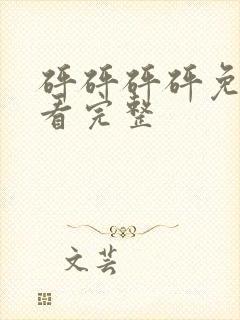 砰砰砰砰免
看完整
文芸